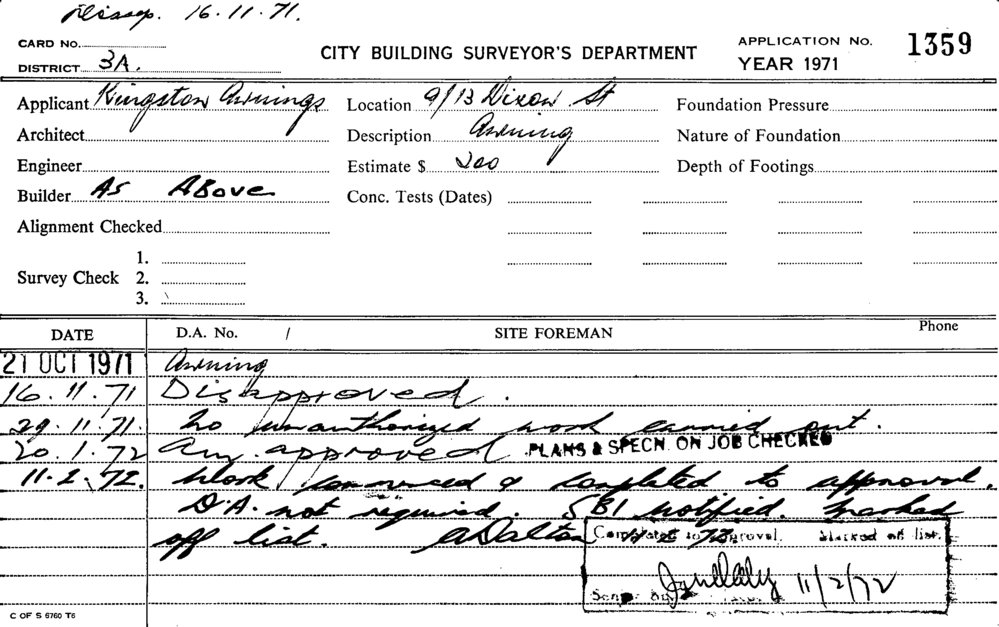 Disapp. 16.11.71.
CARD NO.
DISTRICT 3A.
CITY BUILDING SURVEYOR'S DEPARTMENT
APPLICATION No. 1359
YEAR 1971
Applicant Kingston Awnings Location 9/13 Dixon St Foundation Pressure
Architect Description Awning Nature of Foundation
Engineer Estimate $ 200 Depth of Footings
Builder As Above Conc. Tests (Dates)
Alignment Checked
1.
Survey Check 2.
3.
DATE D.A. No. / SITE FOREMAN Phone
21 OCT 1971 Awning
16.11.71 Disapproved.
29.11.71. No unauthorized work carried out.
20.1.72 Am. approved PLANS & SPECN. ON JOB CHECKED
11.2.72. Work commenced & completed to approval.
D.A. not required. SBI notified. Marked
off list. A Dalton
Completed to approval. Marked off list.
11/2/72
C OF S 6760 T6